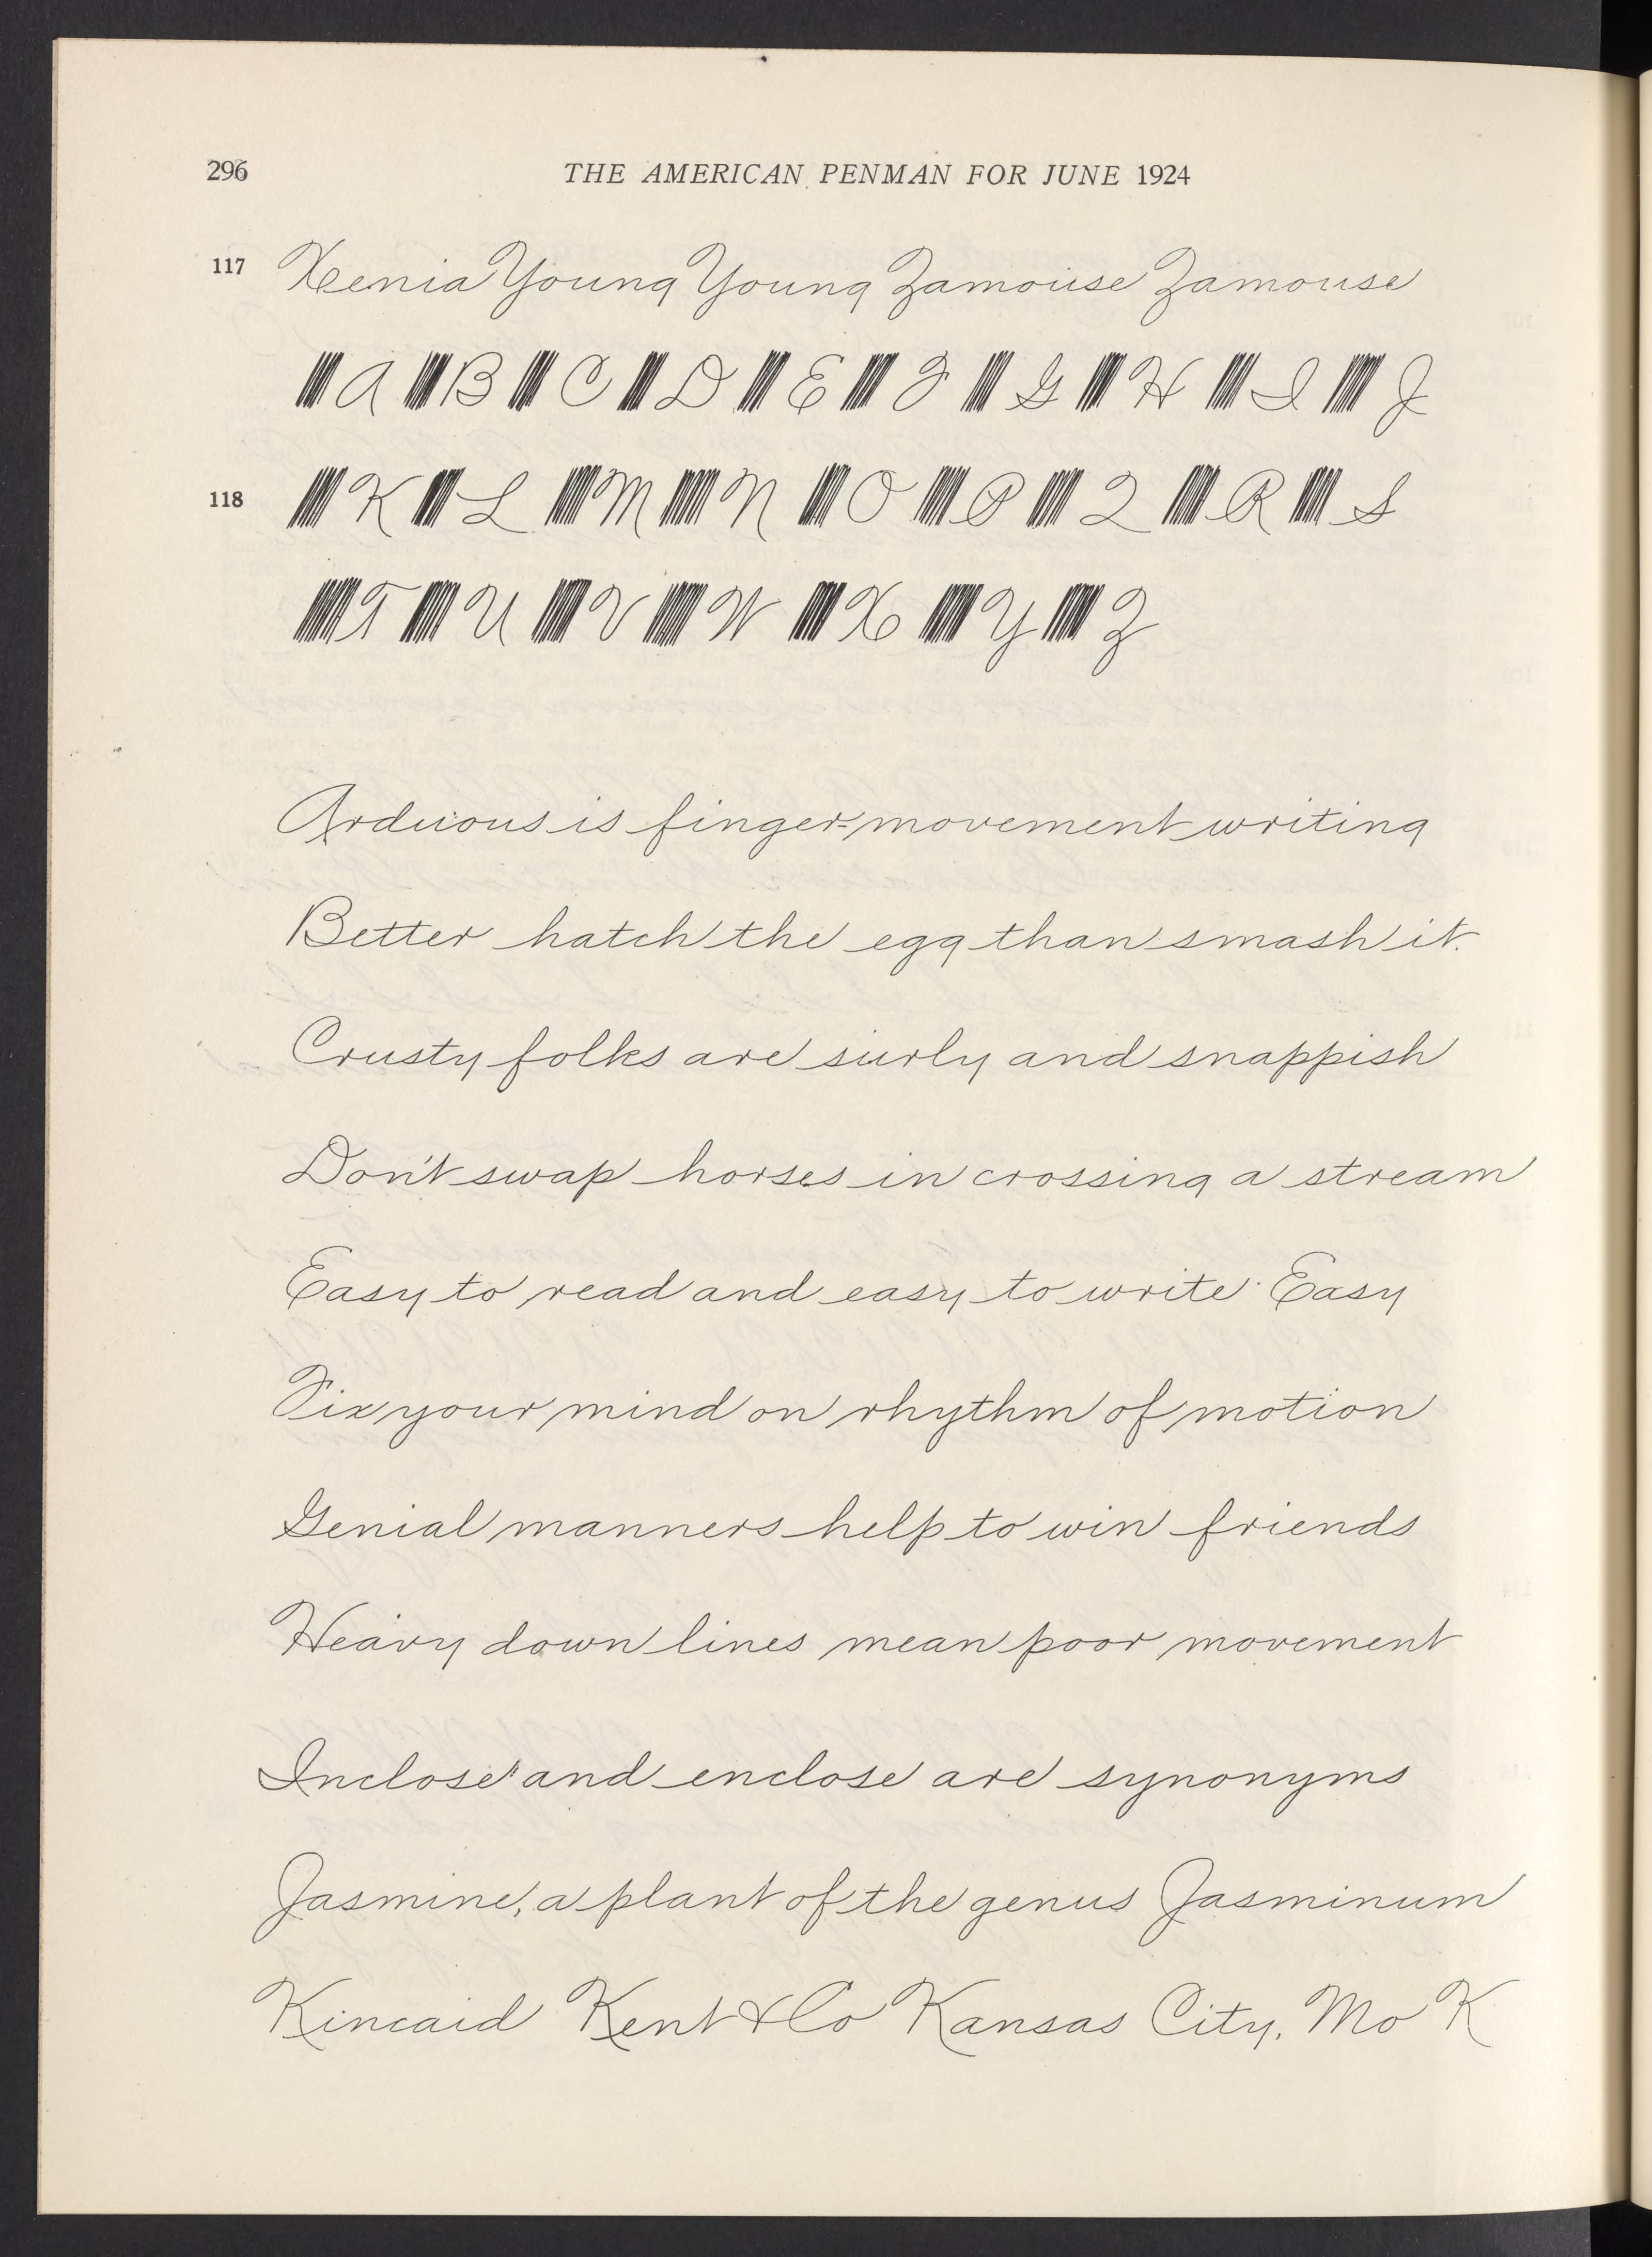 296 THE AMERICAN PENMAN FOR JUNE 1924
117 Xenia Young Young Zamouse Zamouse
A B C D E F G H I J
118 K L M N O P Q R S
T U V W X Y Z
Arduous is finger-movement writing
Better hatch the egg than smash it.
Crusty folks are surly and snappish
Don't swap horses in crossing a stream
Easy to read and easy to write. Easy
Fix your mind on rhythm of motion
Genial manners help to win friends
Heavy down lines mean poor movement
Inclose and enclose are synonyms
Jasmine, a plant of the genus Jasminum
Kincaid Kent & Co Kansas City, Mo K